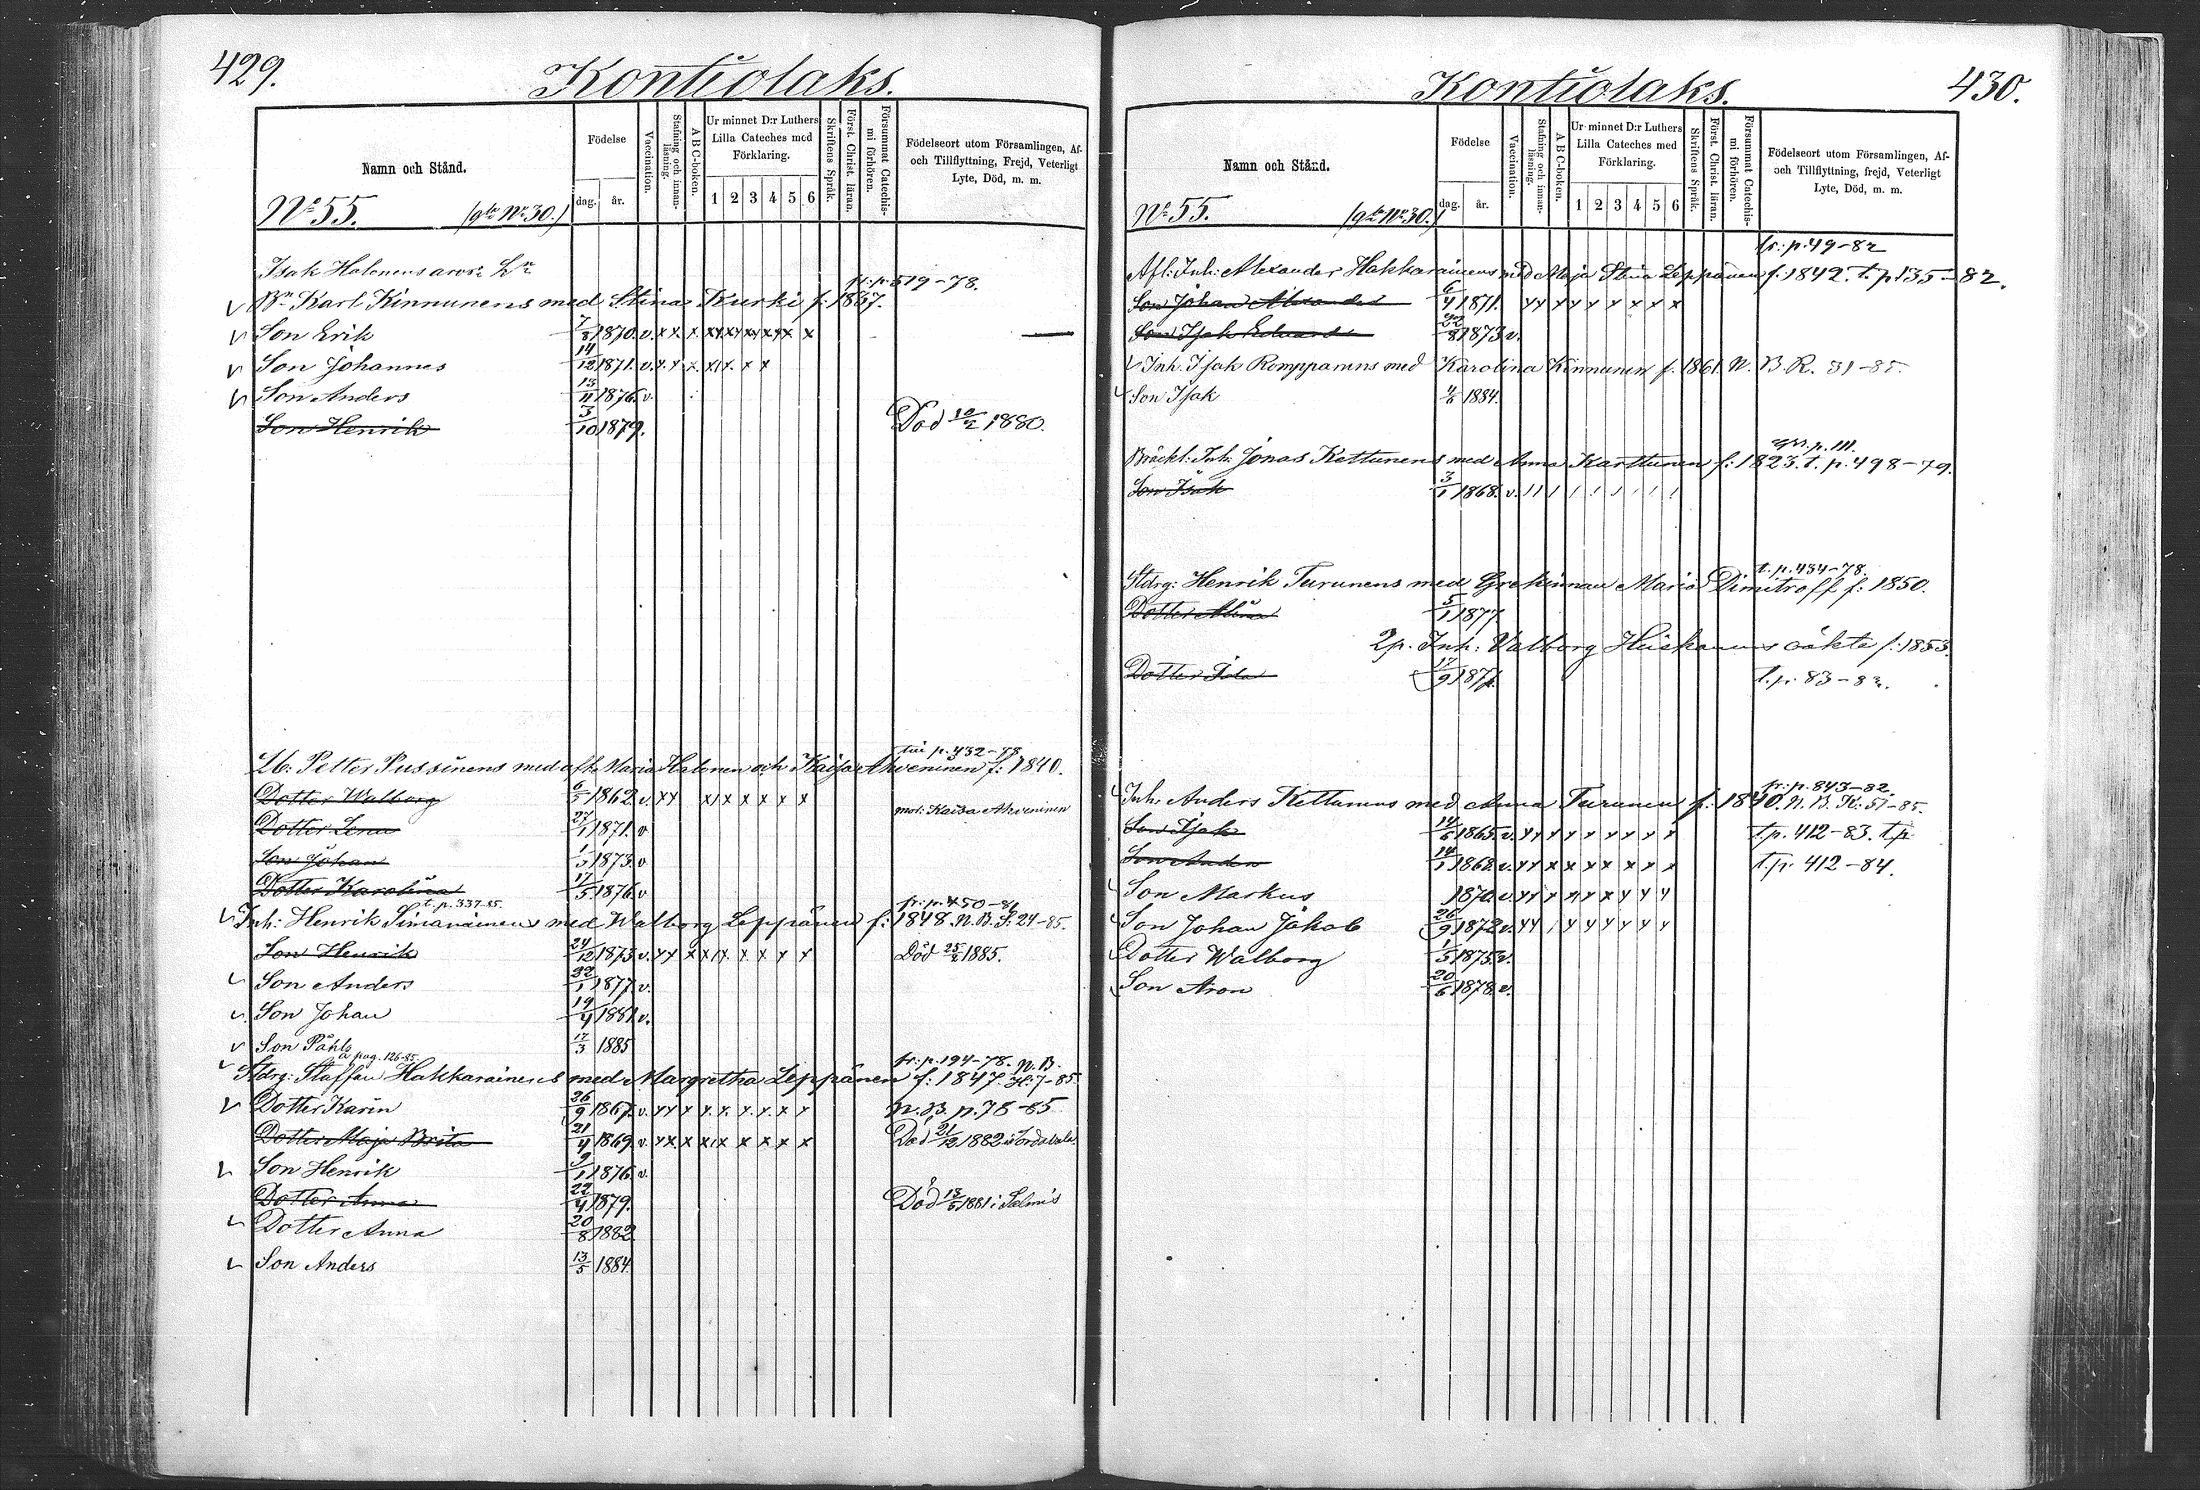 429.
Kontiolaks.
Namn och Stånd.
Födelse
dag.
år.
Vaccination.
Stafning och innanläsning.
ABC-boken.
Ur minnet D:r Luthers
Lilla Cateches med
Förklaring.
1 2 3 4 5 6
Skriftens Språk.
Först. Christ. läran.
Försummat Catechismi förhören.
Födelseort utom Församlingen, Af-
och Tillflyttning, Frejd, Veterligt
Lyte, Död, m. m.
No 55. No 30.
Isak Halonens
fr: p. 519-78.
Karl Kinnunens med Stina Kurki f: 1837.
Son Erik 7/8 1870. v. x x x x x x x x x x
Son Johannes 14/12 1871. v.
Son Anders 1876. v.
Son Henrik 3/10 1879. Död 1880.
till p. 432-78
Petter Pussinens med Maria Halonen och Kaisa Ahveninen f: 1840.
Dotter Walborg 6/5 1862 v. x x x x x x x x
mod: Kaisa Ahveninen
Dotter Lena 27/1 1871. v
Son Johan 1873. v
Dotter Karolina 17/5 1876. v
t. p. 337-85. fr: p. 450-81
Inh: Henrik Simanainens med Walborg Leppänen f: 1848. N. B. S. 24-85.
Son Henrik 24/12 1873. v. Död 1885.
Son Anders 22/1 1877. v.
Son Johan 19/4 1881. v.
Son Påhl 17/3 1885
a pag. 126-85. fr: p. 194-78. N. B.
Stdrg: Staffan Hakkarainens med Margretha Leppänen f: 1847. H: 7-85
Dotter Karin 26/9 1867. v. N. B. p. 78-85
Dotter Maja Brita 21/4 1869. v. Död 21/12 1882 i Sordavala
Son Henrik 9/1 1876. v.
Dotter Anna 22/4 1879. Död 1881 i Salmis
Dotter Anna 20/8 1882
Son Anders 13/5 1884.
430.
Kontiolaks.
Namn och Stånd.
Födelse
dag.
år.
Vaccination.
Stafning och innanläsning.
ABC-boken.
Ur minnet D:r Luthers
Lilla Cateches med
Förklaring.
1 2 3 4 5 6
Skriftens Språk.
Först. Christ. läran.
Försummat Catechismi förhören.
Födelseort utom Församlingen, Af-
och Tillflyttning, frejd, Veterligt
Lyte, Död, m. m.
No 55. No 30.
fr: p. 49-82
Afl: Inh: Alexander Hakkarainens med Maja Stina Leppänen f: 1842. t. p. 135-82.
Son Johan Alexander 6/4 1871.
Son Isak Edvard 1873. v.
Inh. Isak Romppanens med Karolina Kinnunen f. 1861 N. B. R. 31-85.
Son Isak 4/6 1884.
p. 111.
Bräckl: Inh: Jonas Kettunens med Anna Karttunen f: 1823. t. p. 498-79.
Son Isak 3/1 1868. v.
t. p. 434-78.
Stdrg: Henrik Turunens med Grekinnan Maria Dimitroff f: 1850.
Dotter Alina 5/1 1877
2p. Inh: Valborg Huiskanens oäkta f: 1853.
Dotter Ida 17/9 187
t. p. 83-82.
fr: p. 843-82.
Inh: Anders Kettunens med Anna Turunen f: 1840. N. B. K: 51-85.
Son Isak 14/6 1865. v. t. p. 412-83. t. p
Son Anders 14/1 1868. v. t. p. 412-84.
Son Markus 1870. v.
Son Johan Jakob 26/9 1872 v.
Dotter Walborg 1/5 1875. v.
Son Aron 20/6 1878. v.